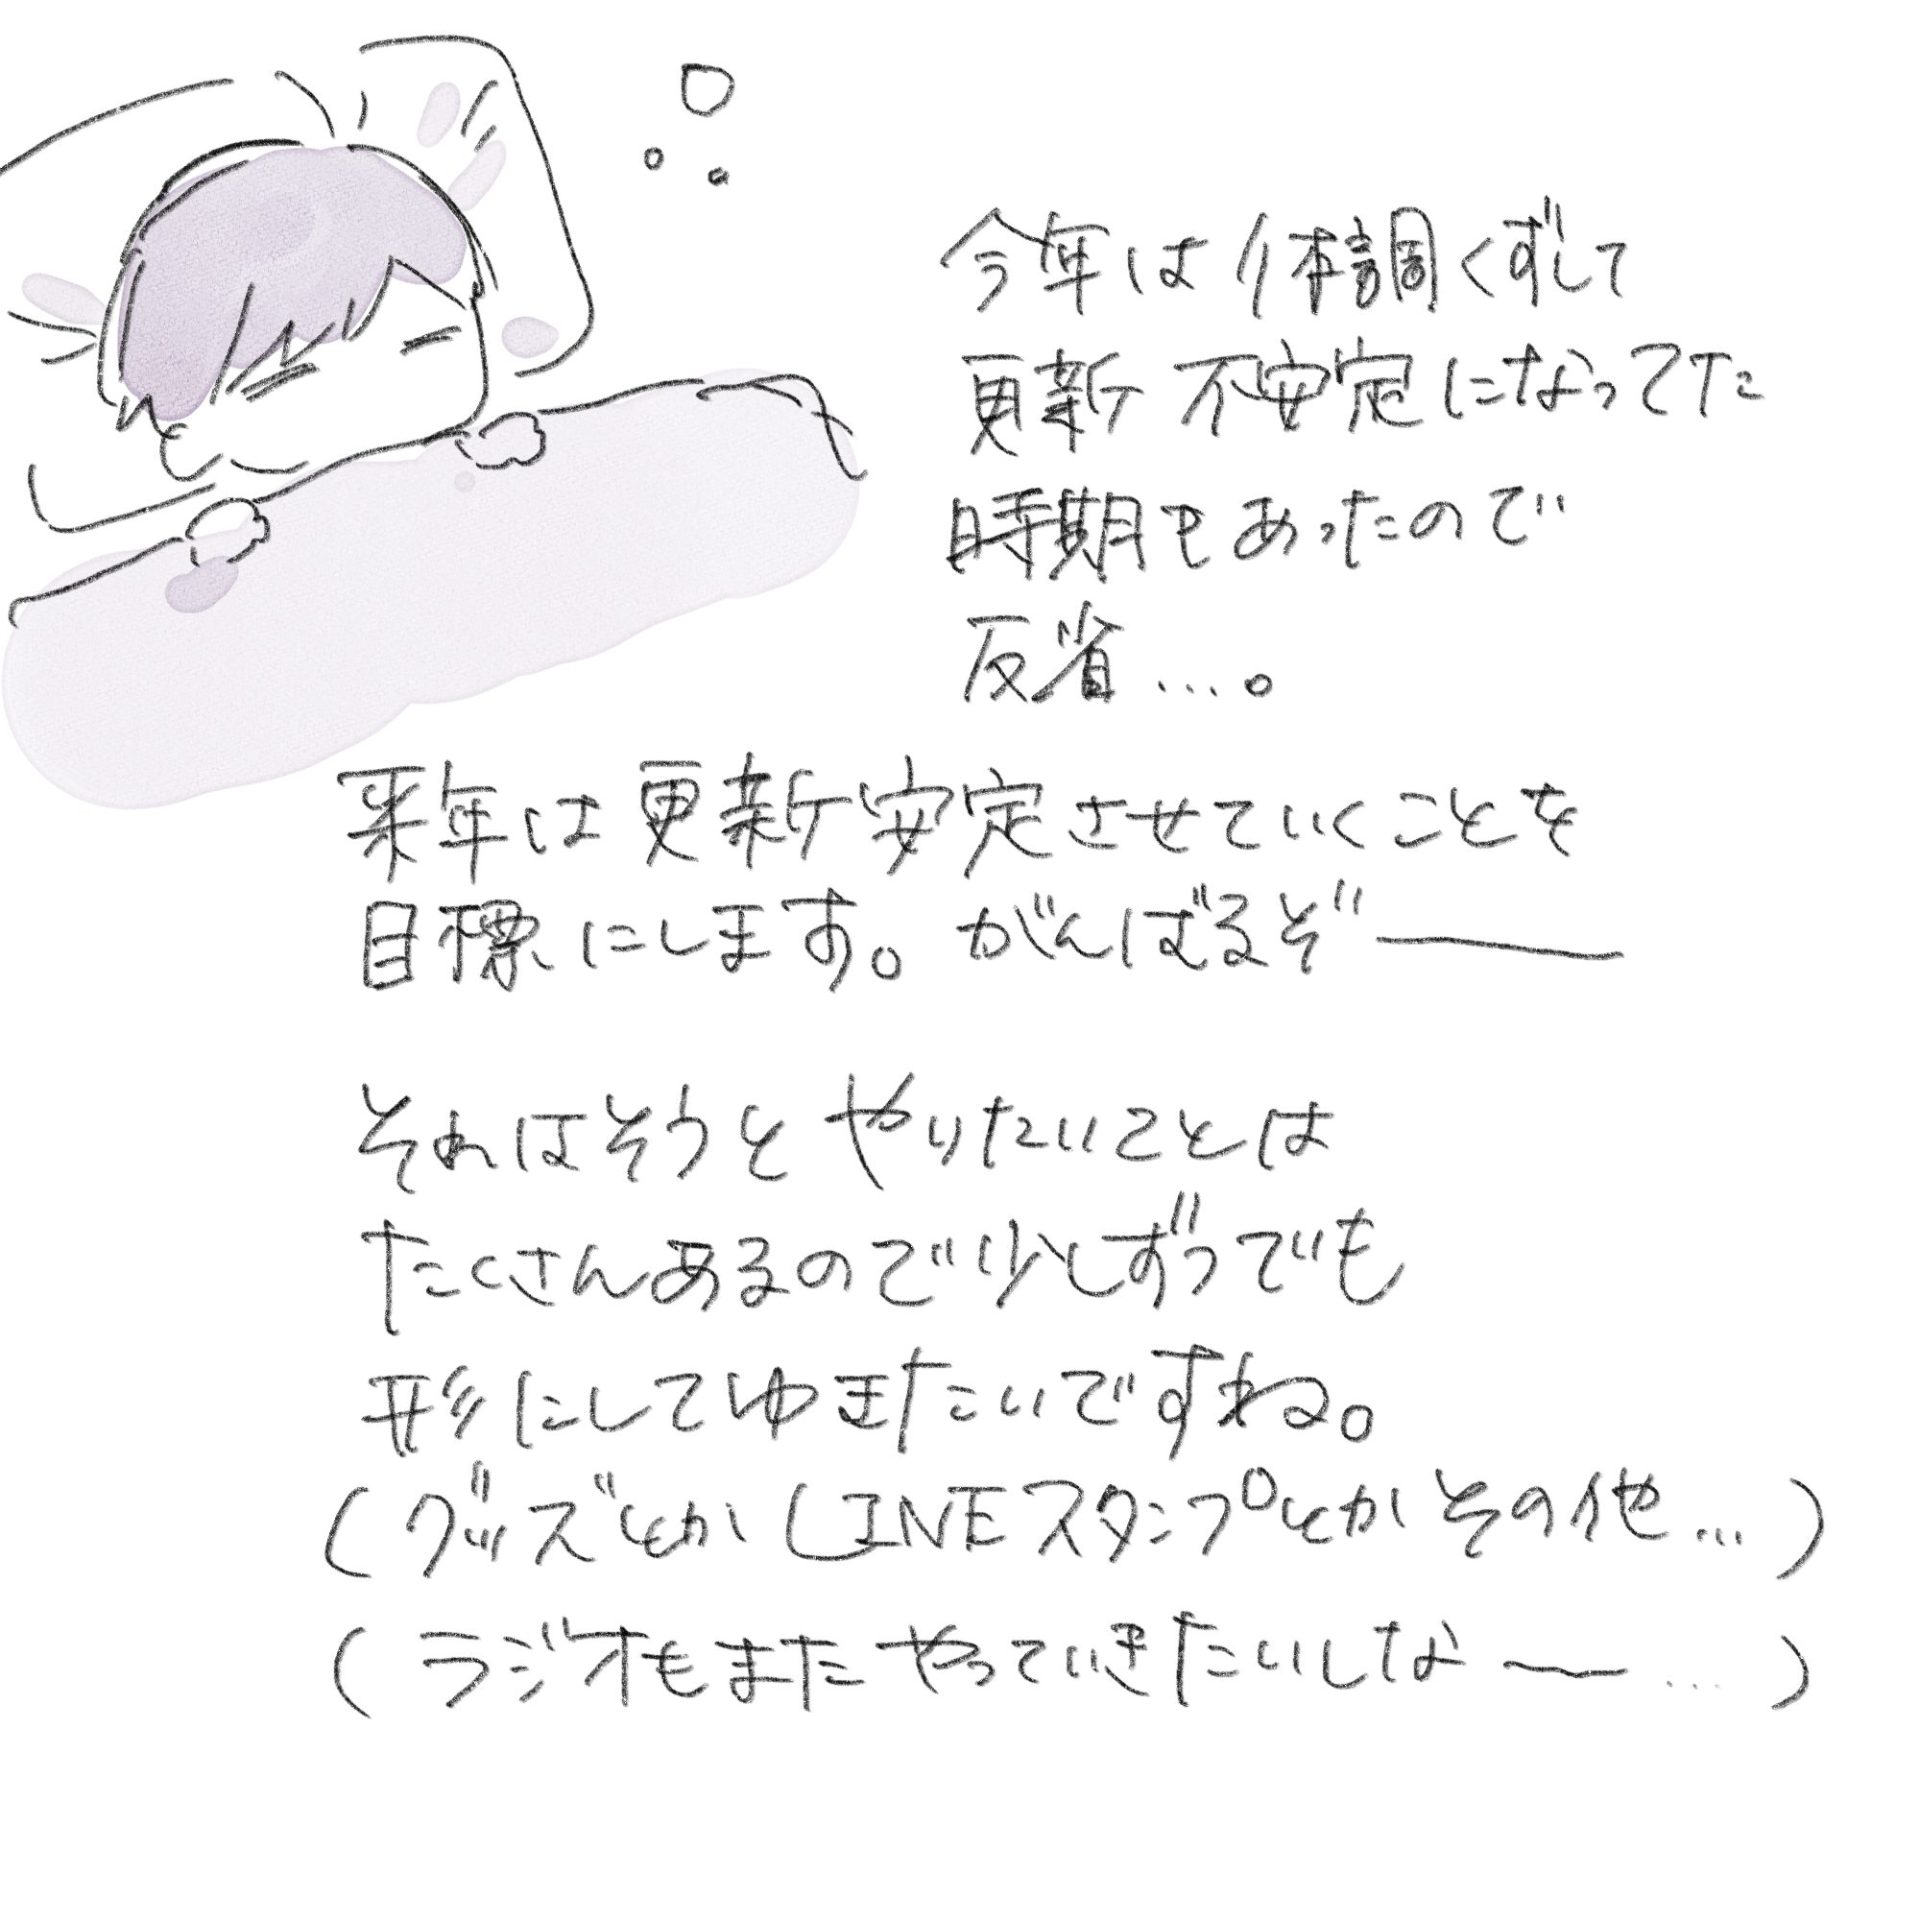 今年は体調くずして
更新不安定になってた
時期もあったので
反省…。
来年は更新安定させていくことを
目標にします。がんばるぞー
それはそうとやりたいことは
たくさんあるので少しずつでも
形にしてゆきたいですね。
(グッズとかLINEスタンプとかその他…)
(ラジオもまたやっていきたいしなー…)